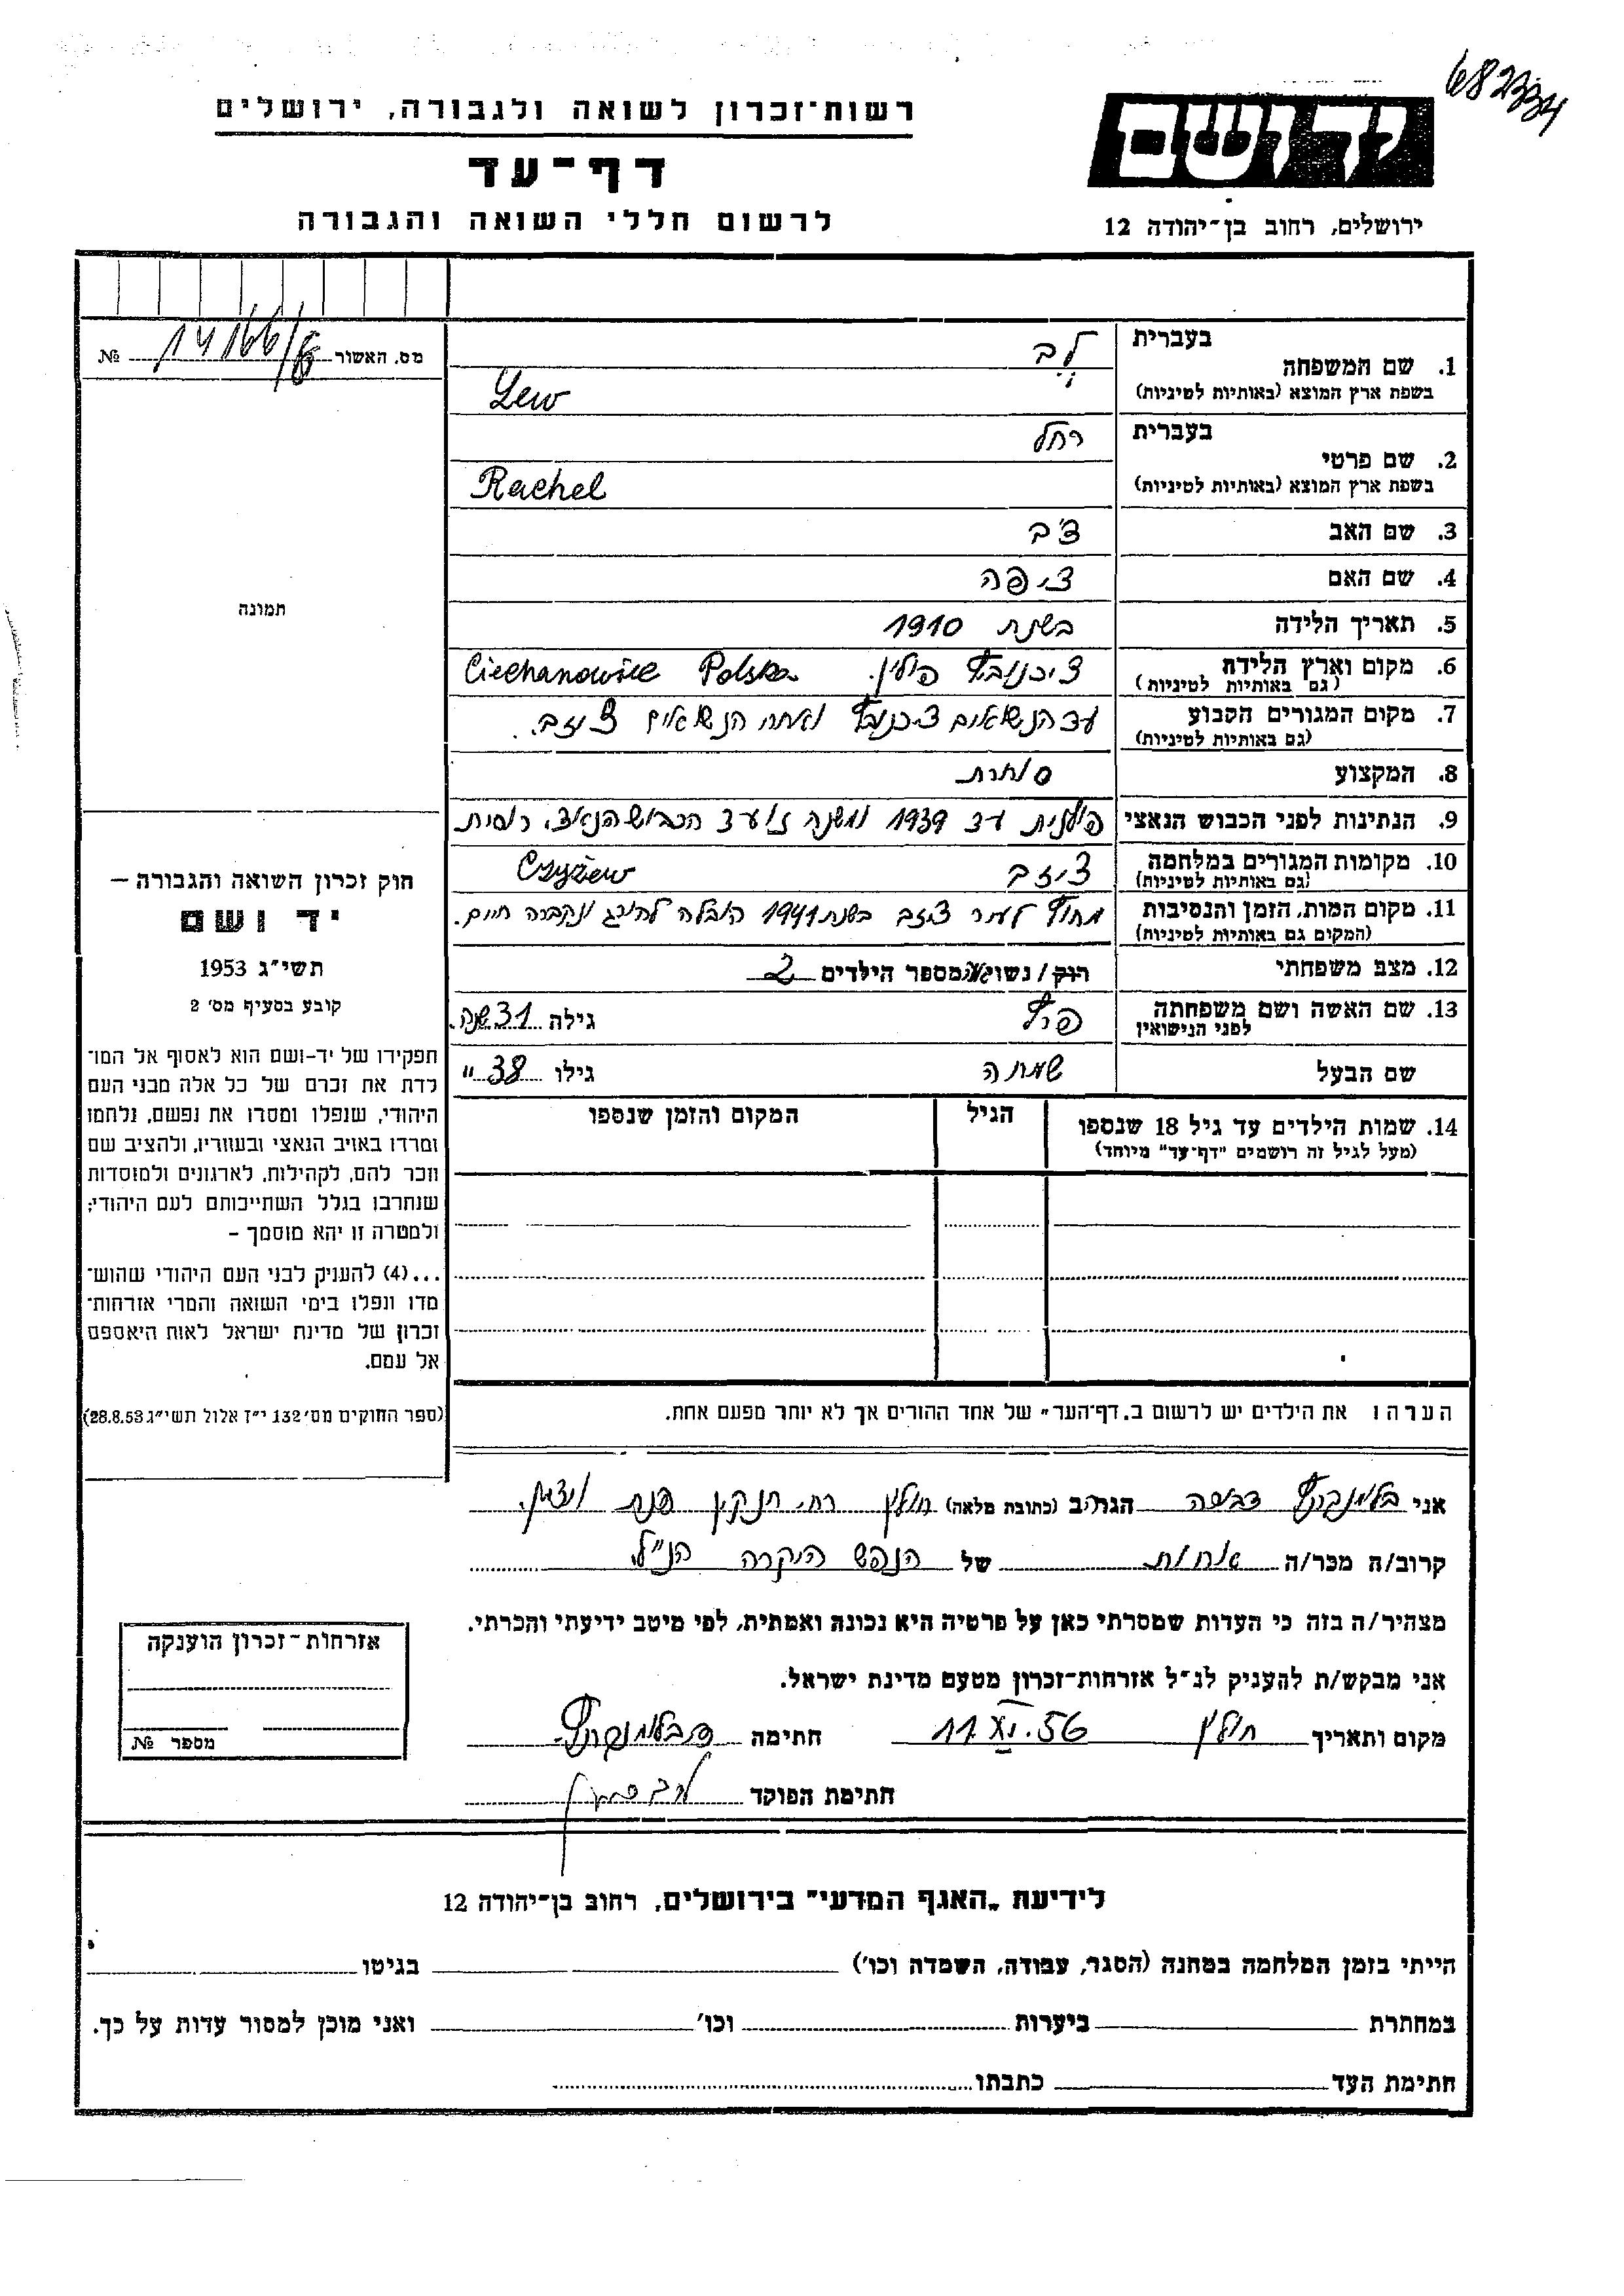 682334
רשות־זכרון לשואה ולגבורה, ירושלים
דף־עד
לרשום חללי השואה והגבורה
יד ושם
ירושלים, רחוב בן־יהודה 12
מס. האשור 14166/6 №
תמונה
חוק זכרון השואה והגבורה —
יד ושם
תשי״ג 1953
קובע בסעיף מס׳ 2
תפקידו של יד־ושם הוא לאסוף אל המו־
לדת את זכרם של כל אלה מבני העם
היהודי, שנפלו ומסרו את נפשם, נלחמו
ומרדו באויב הנאצי ובעוזריו, ולהציב שם
וזכר להם, לקהילות, לארגונים ולמוסדות
שנחרבו בגלל השתייכותם לעם היהודי;
ולמטרה זו יהא מוסמך –
...(4) להעניק לבני העם היהודי שהוש־
מדו ונפלו בימי השואה והמרי אזרחות־
זכרון של מדינת ישראל לאות היאספם
אל עמם.
(ספר החוקים מס׳ 132 י״ז אלול תשי״ג 28.8.53)
בעברית לב
1. שם המשפחה
בשפת ארץ המוצא (באותיות לטיניות) Lew
בעברית רחל
2. שם פרטי
בשפת ארץ המוצא (באותיות לטיניות) Rachel
3. שם האב
4. שם האם ציפה
5. תאריך הלידה בשנת 1910
6. מקום וארץ הלידה ציכנובץ פולין. Ciechanowice Polska
(גם באותיות לטיניות)
7. מקום המגורים הקבוע עד הנשואים ציכנובץ ואחרי הנשואים ציזב.
(גם באותיות לטיניות)
8. המקצוע סוחרת
9. הנתינות לפני הכבוש הנאצי פולנית עד 1939 ומשנה זו עד הכבוש הנאצי רוסית
10. מקומות המגורים במלחמה ציזב Czyżew
(גם באותיות לטיניות)
11. מקום המות, הזמן והנסיבות מחוץ לעיר ציזב בשנת 1941 הובלה להורג ונקברה חיים.
(המקום גם באותיות לטיניות)
12. מצב משפחתי רוק/נשוי/אה מספר הילדים 2
13. שם האשה ושם משפחתה גילה 31 שנה.
לפני הנישואין
שם הבעל שמחה גילו 38 "
14. שמות הילדים עד גיל 18 שנספו הגיל המקום והזמן שנספו
(מעל לגיל זה רושמים "דף־עד" מיוחד)
הערה: את הילדים יש לרשום ב„דף־העד״ של אחד ההורים אך לא יותר מפעם אחת.
אני הגר/ה ב (כתובת מלאה) חולון רח. חנקין פנת
קרוב/ה מכר/ה אחות של הנפש היקרה הנ״ל.
מצהיר/ה בזה כי העדות שמסרתי כאן על פרטיה היא נכונה ואמתית, לפי מיטב ידיעתי והכרתי.
אני מבקש/ת להעניק לנ״ל אזרחות־זכרון מטעם מדינת ישראל.
מקום ותאריך חולון 11.XI.56 חתימה
חתימת הפוקד
אזרחות־זכרון הוענקה
מספר №
לידיעת „האגף המדעי״ בירושלים, רחוב בן־יהודה 12
הייתי בזמן המלחמה במחנה (הסגר, עבודה, השמדה וכו׳) בגיטו
במחתרת ביערות וכו׳ ואני מוכן למסור עדות על כך.
חתימת העד כתבתו